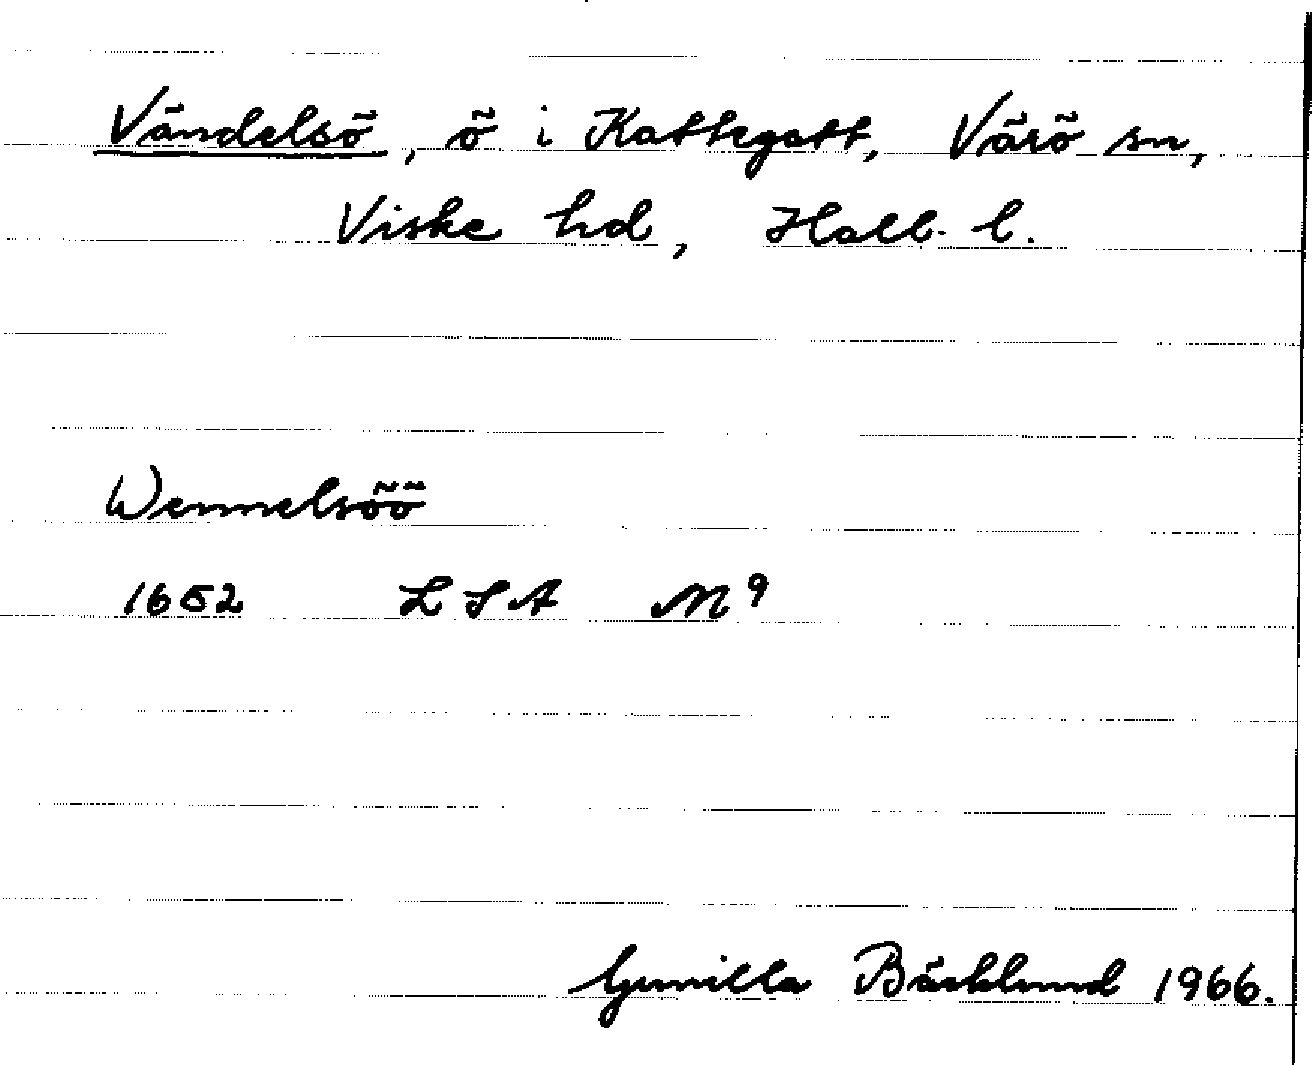 Vändelsö, ö i Kattegatt, Värö sn,
Viske hd, Hall. l.
Wennelsöö
1652 LSA M9
Gunilla Bäcklund 1966.